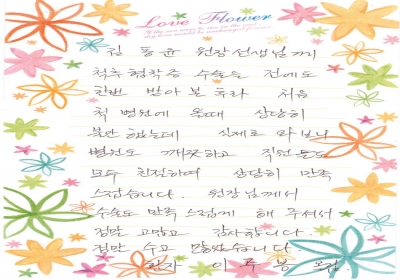 Love Flower
김동윤 원장선생님께
척추협착증 수술을 전에도
한번 받아 본 후라 처음
척병원에 올때 상당히
불안했는데 실제로 와보니
병원도 깨끗하고 직원분들도
모두 친절하여 상당히 만족
스럽습니다. 원장님께서
수술도 만족스럽게 해주셔서
정말 고맙고 감사합니다
정말 수고 많았습니다
환자 이 봉 올림